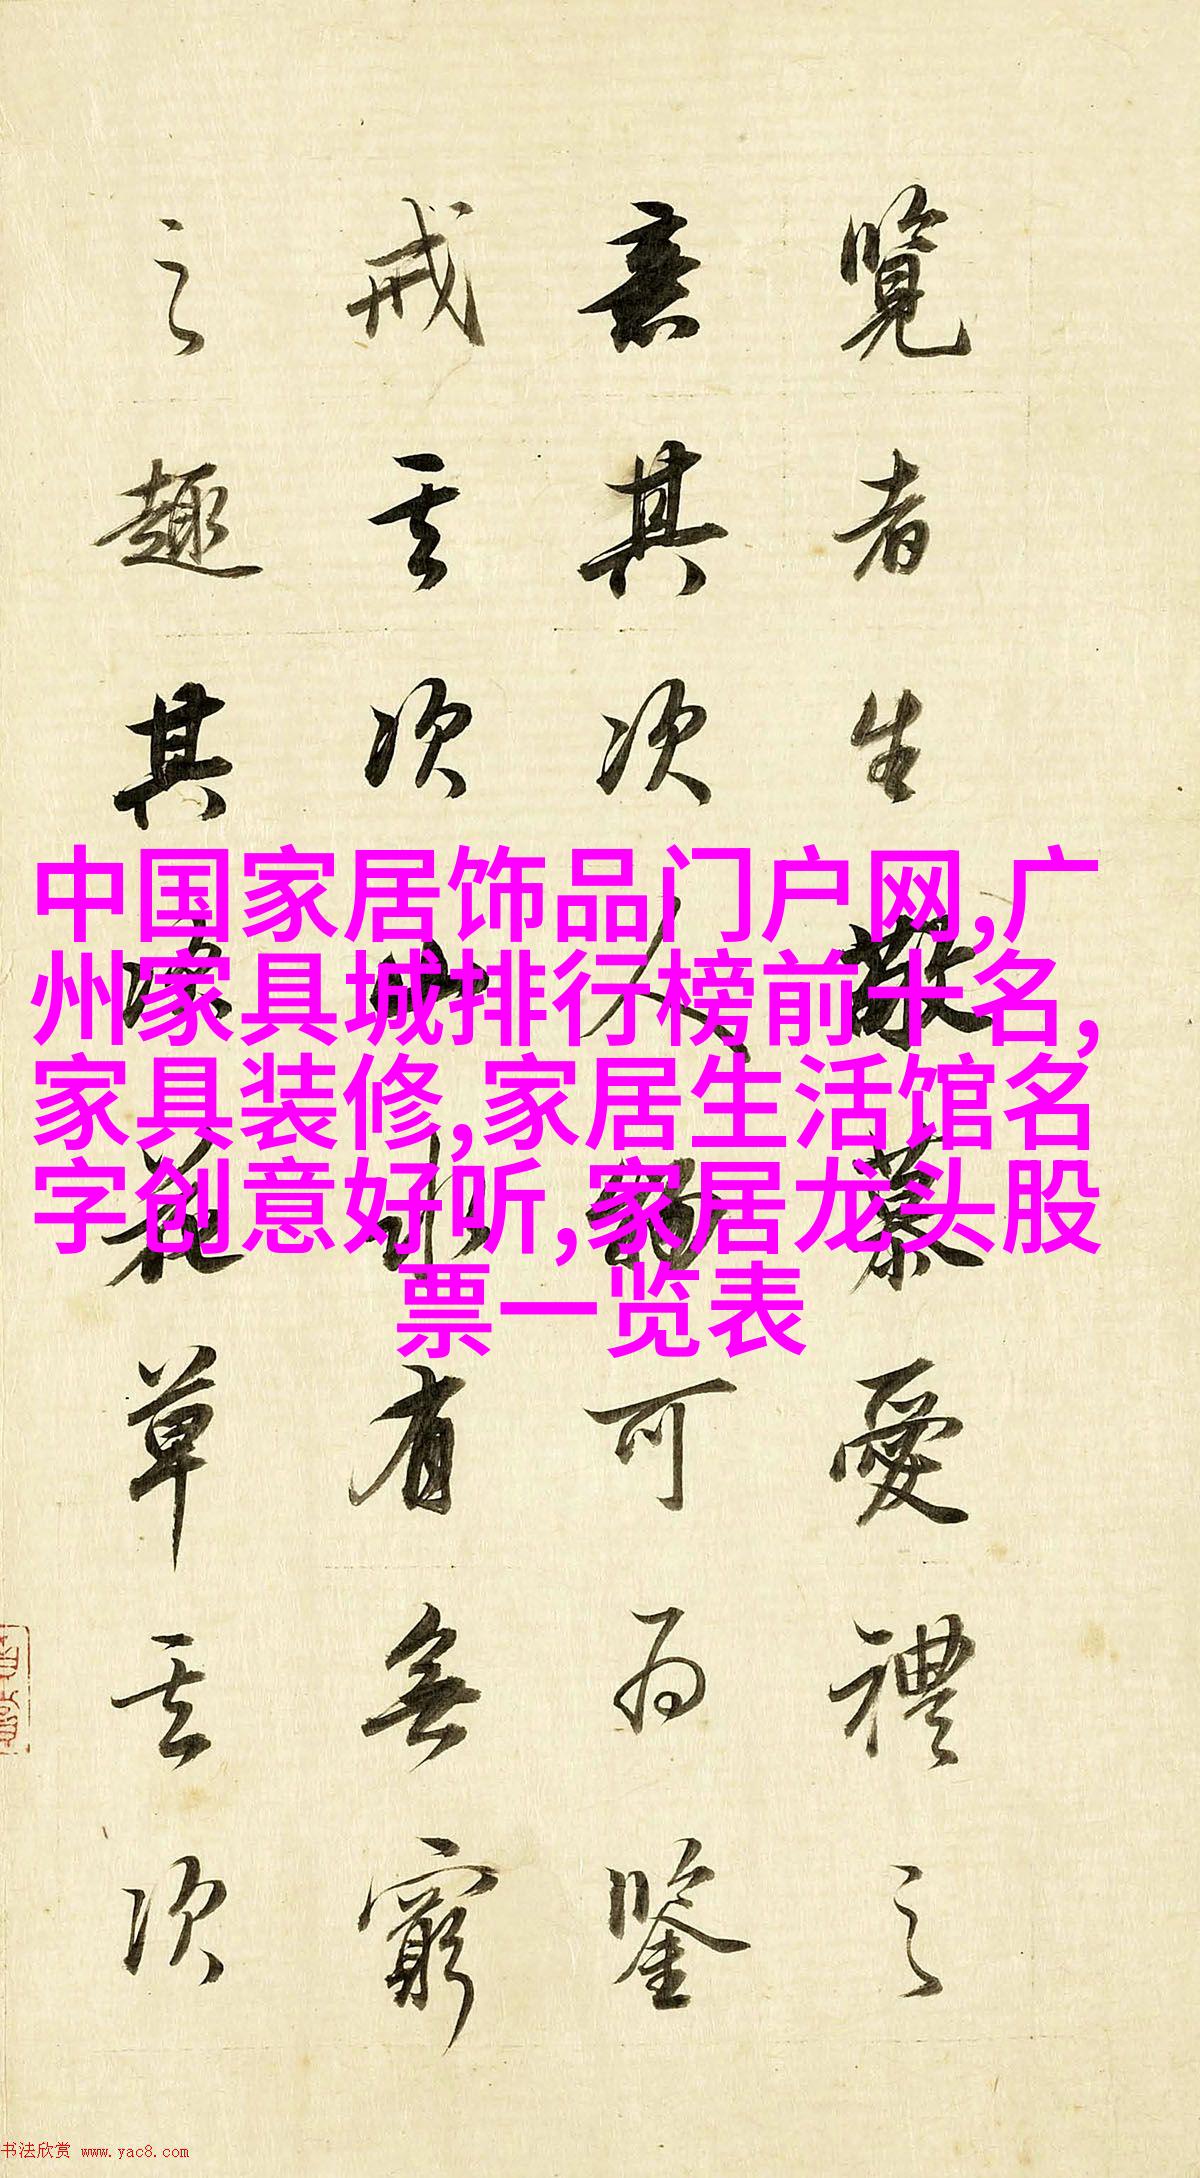 覽者生敬慕愛禮之
意其次人物可為鑒
戒其次山水有無窮
之趣其花草其次
中国家居饰品门户网,广
州家具城排行榜前十名,
家具装修,家居生活馆名
字创意好听,家居龙头股
票一览表
书法欣赏 www.yac8.com